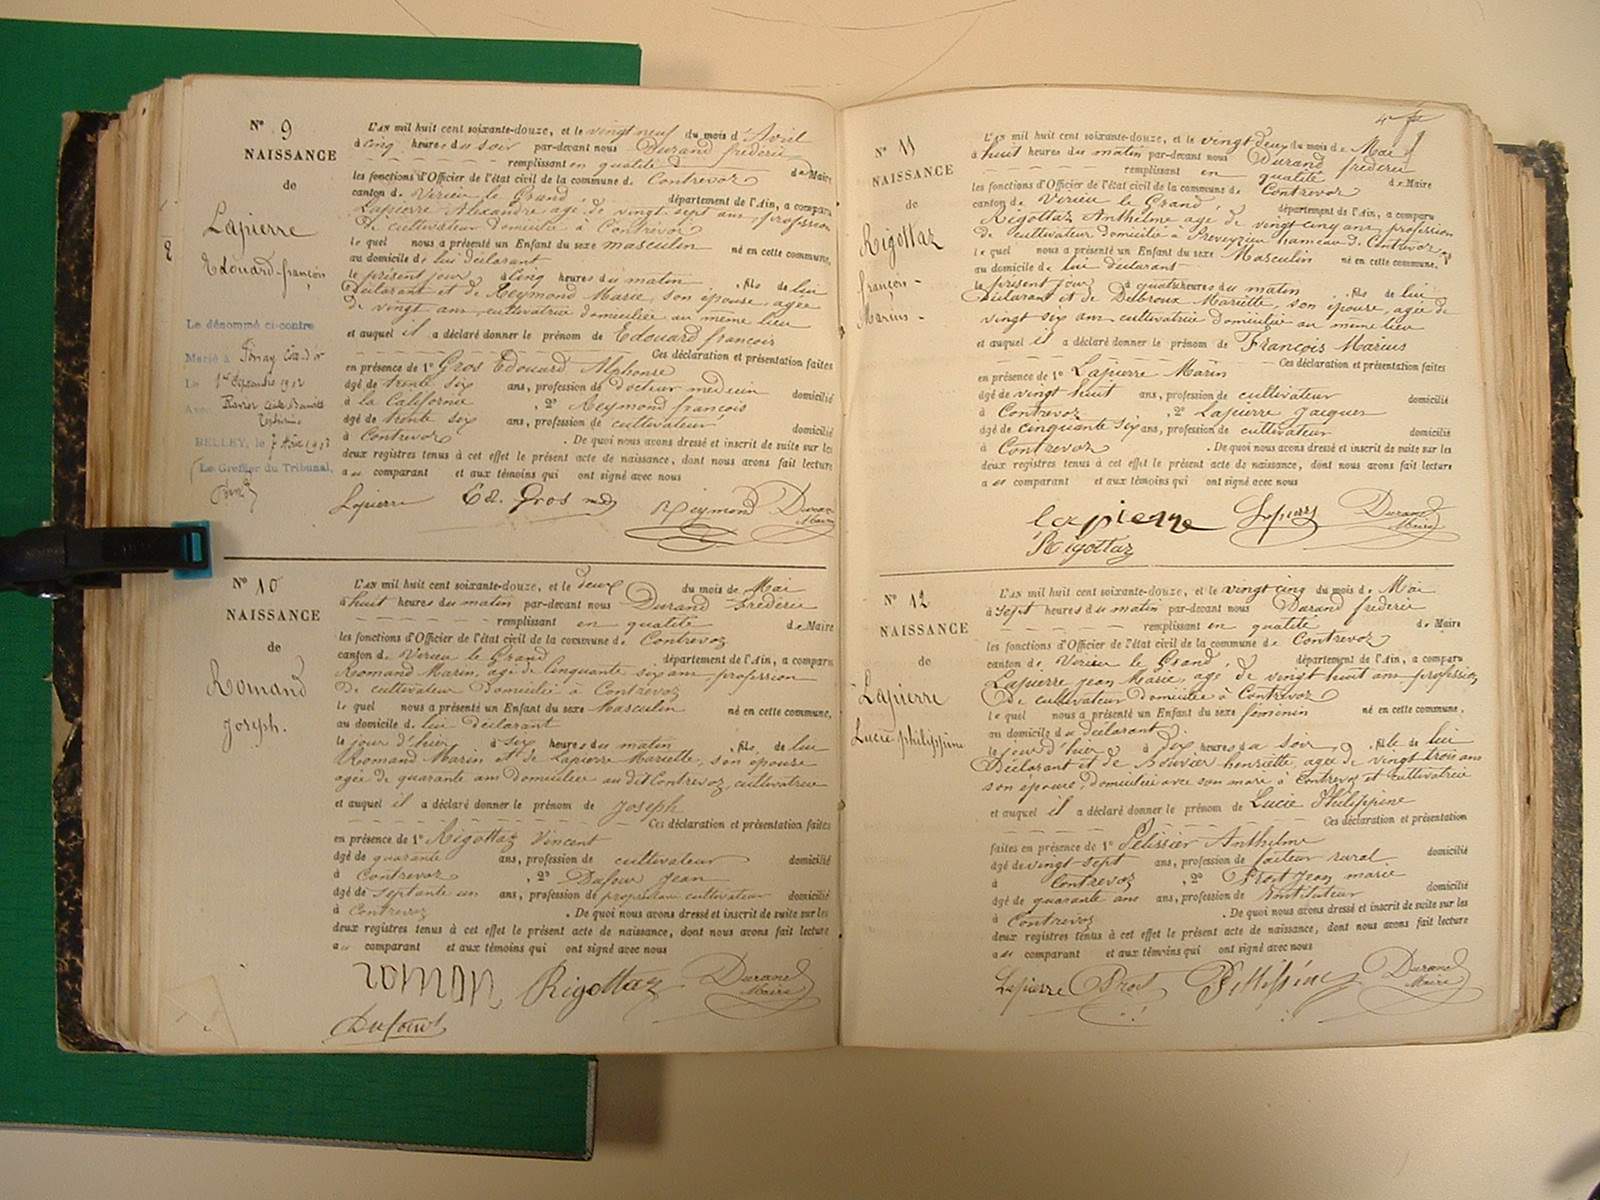 N° 9
NAISSANCE
de
Lapierre
Edouard-françois
Le dénommé ci-contre
Marié à
Le 1er Septembre 1912
Avec
BELLEY, le
Le Greffier du Tribunal,
L'AN mil huit cent soixante-douze, et le vingt neuf du mois d'Avril
à cinq heures du soir par-devant nous Durand frédéric
remplissant en qualité de Maire
les fonctions d'Officier de l'état civil de la commune de Contrevoz
canton de Virieu le Grand, département de l'Ain, a comparu
Lapierre Alexandre agé de vingt sept ans, profession
de cultivateur domicilié à Contrevoz
lequel nous a présenté un Enfant du sexe masculin né en cette commune,
au domicile de lui déclarant
le présent jour à cinq heures du matin, fils de lui
Déclarant et de Reymond Marie, son épouse, agée
de vingt ans, cultivatrice domiciliée au même lieu
et auquel il a déclaré donner le prénom de Edouard françois
Ces déclaration et présentation faites
en présence de 1° Gros Edouard Alphonse
âgé de trente six ans, profession de docteur medecin domicilié
à la Californie, 2° Reymond françois
âgé de trente six ans, profession de cultivateur domicilié
à Contrevoz. De quoi nous avons dressé et inscrit de suite sur les
deux registres tenus à cet effet le présent acte de naissance, dont nous avons fait lecture
au comparant et aux témoins qui ont signé avec nous
Lapierre Ed. Gros Reymond Durand
Maire
N° 10
NAISSANCE
de
Romand
Joseph.
L'AN mil huit cent soixante-douze, et le deux du mois de Mai
à huit heures du matin par-devant nous Durand frédéric
remplissant en qualité de Maire
les fonctions d'Officier de l'état civil de la commune de Contrevoz
canton de Virieu le Grand département de l'Ain, a comparu
Romand Marin, agé de cinquante six ans profession
de cultivateur domicilié à Contrevoz
lequel nous a présenté un Enfant du sexe Masculin né en cette commune,
au domicile de lui déclarant
le jour d'hier à six heures du matin, fils de lui
Romand Marin et de Lapierre Mariette, son épouse
agée de quarante ans domiciliée au dit Contrevoz, cultivatrice
et auquel il a déclaré donner le prénom de Joseph
Ces déclaration et présentation faites
en présence de 1° Rigottaz Vincent
âgé de quarante ans, profession de cultivateur domicilié
à Contrevoz, 2° Dufour Jean
âgé de septante un ans, profession de propriétaire cultivateur domicilié
à Contrevoz. De quoi nous avons dressé et inscrit de suite sur les
deux registres tenus à cet effet le présent acte de naissance, dont nous avons fait lecture
au comparant et aux témoins qui ont signé avec nous
romon Rigottaz Durand
Maire
Dufour
N° 11
NAISSANCE
de
Rigottaz
françois-
Marius-
L'AN mil huit cent soixante-douze, et le vingt deux du mois de Mai
à huit heures du matin par-devant nous Durand frédéric
remplissant en qualité de Maire
les fonctions d'Officier de l'état civil de la commune de Contrevoz
canton de Virieu le Grand, département de l'Ain, a comparu
Rigottaz Anthelme agé de vingt cinq ans, profession
de cultivateur domicilié à Preveyzieu hameau de Contrevoz
lequel nous a présenté un Enfant du sexe Masculin né en cette commune,
au domicile de lui déclarant
le présent jour à quatre heures du matin, fils de lui
Déclarant et de Delbroux Mariette, son épouse, agée de
vingt six ans, cultivatrice domiciliée au même lieu
et auquel il a déclaré donner le prénom de François Marius
Ces déclaration et présentation faites
en présence de 1° Lapierre Marin
âgé de vingt huit ans, profession de cultivateur domicilié
à Contrevoz, 2° Lapierre Jacques
âgé de cinquante six ans, profession de cultivateur domicilié
à Contrevoz. De quoi nous avons dressé et inscrit de suite sur les
deux registres tenus à cet effet le présent acte de naissance, dont nous avons fait lecture
au comparant et aux témoins qui ont signé avec nous
lapierre Lapierre Durand
Maire
Rigottaz
N° 12
NAISSANCE
de
Lapierre
Lucie philippine
L'AN mil huit cent soixante-douze, et le vingt cinq du mois de Mai
à sept heures du matin par-devant nous Durand frédéric
remplissant en qualité de Maire
les fonctions d'Officier de l'état civil de la commune de Contrevoz
canton de Virieu le Grand, département de l'Ain, a comparu
Lapierre jean Marie, agé de vingt huit ans, profession
de cultivateur domicilié à Contrevoz
lequel nous a présenté un Enfant du sexe féminin né en cette commune,
au domicile du déclarant
le jour d'hier à dix heures du soir, fille de lui
Déclarant et de Bouvier henriette, agée de vingt trois ans
son épouse, domiciliée avec son mari à Contrevoz et cultivatrice
et auquel il a déclaré donner le prénom de Lucie Philippine
Ces déclaration et présentation
faites en présence de 1° Pélissier Anthelme
âgé de vingt sept ans, profession de facteur rural domicilié
à Contrevoz, 2° Prost Jean marie
âgé de quarante ans ans, profession de Instituteur domicilié
à Contrevoz. De quoi nous avons dressé et inscrit de suite sur les
deux registres tenus à cet effet le présent acte de naissance, dont nous avons fait lecture
au comparant et aux témoins qui ont signé avec nous
Lapierre Prost Durand
Maire